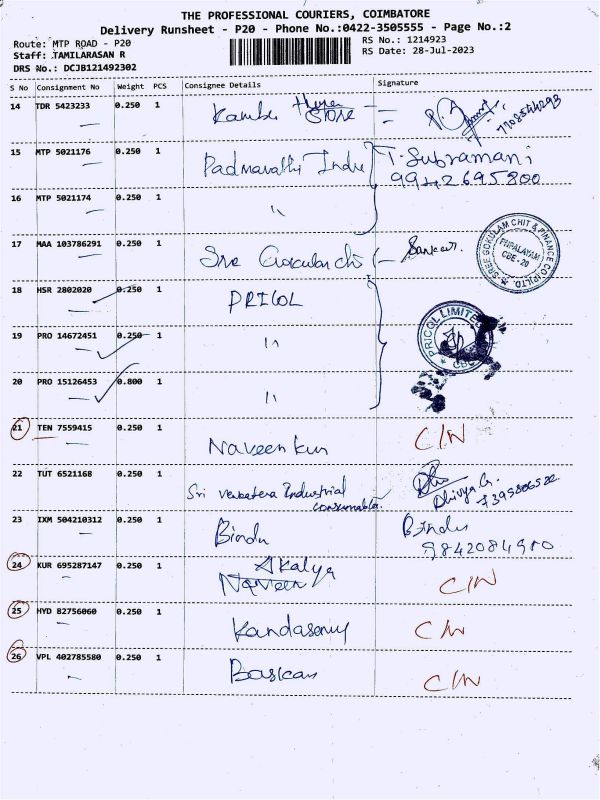 THE PROFESSIONAL COURIERS, COIMBATORE
Delivery Runsheet - P20 - Phone No.:0422-3505555 - Page No.:2
Route: MTP ROAD - P20 RS No.: 1214923
Staff: TAMILARASAN R RS Date: 28-Jul-2023
DRS No.: DCJB121492302
S No Consignment No Weight PCS Consignee Details Signature
14 TDR 5423233 0.250 1 Store
15 MTP 5021176 0.250 1 Padmavathy Indu T. Subramani
9942695800
16 MTP 5021174 0.250 1 "
17 MAA 103786291 0.250 1 Sree Gokulam chi Sankar.
SREE GOKULAM CHIT & FINANCE CO.(P) LTD.
PAPALAYAM
CBE - 20
18 HSR 2802020 0.250 1 PRICOL
19 PRO 14672451 0.250 1 "
PRICOL LIMITED
CBE
20 PRO 15126453 0.800 1 "
21 TEN 7559415 0.250 1 Naveen kur C/N
22 TUT 6521168 0.250 1 Sri Venkatera Industrial
consumable. Dhivya.G.
23 IXM 504210312 0.250 1 Bindu Bindu
9842084910
24 KUR 695287147 0.250 1 Akalya
Naveen C/N
25 HYD 82756060 0.250 1 Kandasamy C/N
26 VPL 402785580 0.250 1 Baskar C/N